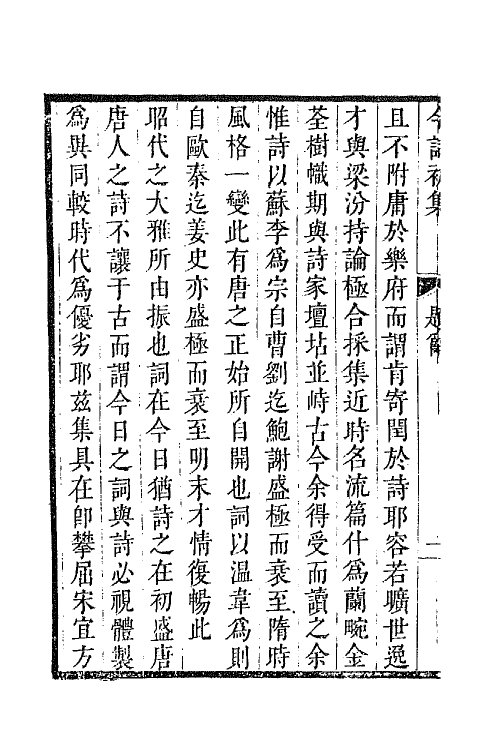 今詞初集 題辭 二
且不附庸於樂府而謂肯寄閏於詩耶容若曠世逸
才與梁汾持論極合採集近時名流篇什為蘭畹金
荃樹幟期與詩家壇坫並峙古今余得受而讀之余
惟詩以蘇李為宗自曹劉迄鮑謝盛極而衰至隋時
風格一變此有唐之正始所自開也詞以温韋為則
自歐秦迄姜史亦盛極而衰至明末才情復暢此
昭代之大雅所由振也詞在今日猶詩之在初盛唐
唐人之詩不讓于古而謂今日之詞與詩必視體製
為異同較時代為優劣耶茲集具在卽攀屈宋宜方